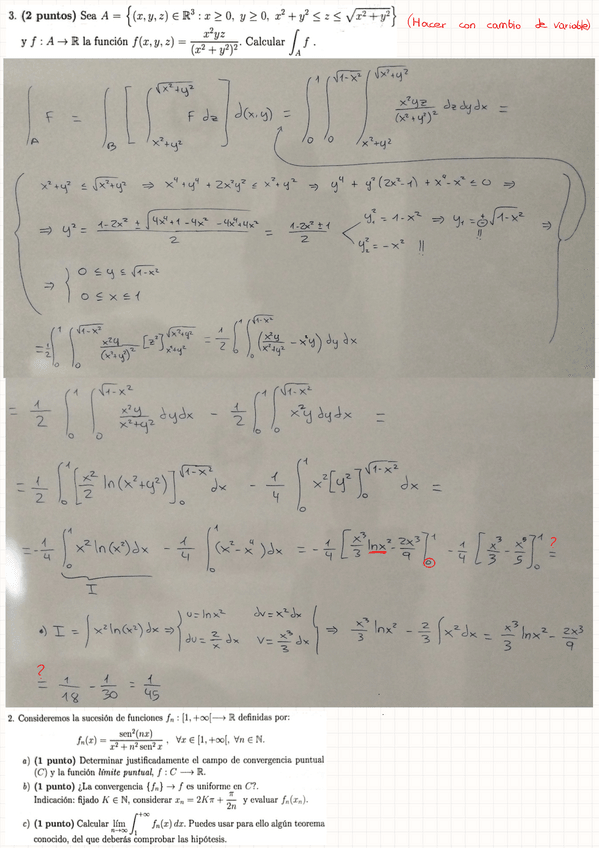 3. (2 puntos) Sea A = {(x, y, z) ∈ ℝ³ : x ≥ 0, y ≥ 0, x² + y² ≤ z ≤ √(x² + y²)} (Hacer con cambio de variable)
y f : A → ℝ la función f(x, y, z) = x²yz/(x² + y²)². Calcular ∫_A f .
∫_A F = ∫_B [∫_{x²+y²}^{√(x²+y²)} F dz] d(x,y) = ∫_0^1 ∫_0^{√(1-x²)} ∫_{x²+y²}^{√(x²+y²)} x²yz/(x²+y²)² dz dy dx =
x²+y² ≤ √(x²+y²) ⇒ x⁴+y⁴+2x²y² ≤ x²+y² ⇒ y⁴ + y²(2x²-1) + x⁴-x² ≤ 0 ⇒
⇒ y² = (1-2x² ± √(4x⁴+1-4x² -4x⁴+4x²))/2 = (1-2x²±1)/2 < y₁² = 1-x² ⇒ y₁ = ±√(1-x²) ⇒
y₂² = -x² !! !!
⇒ { 0 ≤ y ≤ √(1-x²)
0 ≤ x ≤ 1
= 1/2 ∫_0^1 ∫_0^{√(1-x²)} x²y/(x²+y²)² [z²]_{x²+y²}^{√(x²+y²)} = 1/2 ∫_0^1 ∫_0^{√(1-x²)} (x²y/(x²+y²) - x²y) dy dx
= 1/2 ∫_0^1 ∫_0^{√(1-x²)} x²y/(x²+y²) dy dx - 1/2 ∫_0^1 ∫_0^{√(1-x²)} x²y dy dx =
= 1/2 ∫_0^1 [x²/2 ln(x²+y²)]_0^{√(1-x²)} dx - 1/4 ∫_0^1 x² [y²]_0^{√(1-x²)} dx =
= -1/4 ∫_0^1 x² ln(x²) dx - 1/4 ∫_0^1 (x²-x⁴) dx = -1/4 [x³/3 lnx² - 2x³/9]_0^1 - 1/4 [x³/3 - x⁵/5]_0^1 ?=
I
•) I = ∫ x² ln(x²) dx ⇒ { u = ln x² dv = x² dx
du = 2/x dx v = x³/3 dx } ⇒ x³/3 ln x² - 2/3 ∫ x² dx = x³/3 ln x² - 2x³/9
?
= 1/18 - 1/30 = 1/45
2. Consideremos la sucesión de funciones fₙ : [1, +∞[⟶ ℝ definidas por:
fₙ(x) = sen²(nx)/(x² + n² sen² x) , ∀x ∈ [1, +∞[, ∀n ∈ ℕ.
a) (1 punto) Determinar justificadamente el campo de convergencia puntual
(C) y la función límite puntual, f : C ⟶ ℝ.
b) (1 punto) ¿La convergencia {fₙ} → f es uniforme en C?.
Indicación: fijado K ∈ ℕ, considerar xₙ = 2Kπ + π/2n y evaluar fₙ(xₙ).
c) (1 punto) Calcular lím_{n→∞} ∫_1^{+∞} fₙ(x) dx. Puedes usar para ello algún teorema
conocido, del que deberás comprobar las hipótesis.